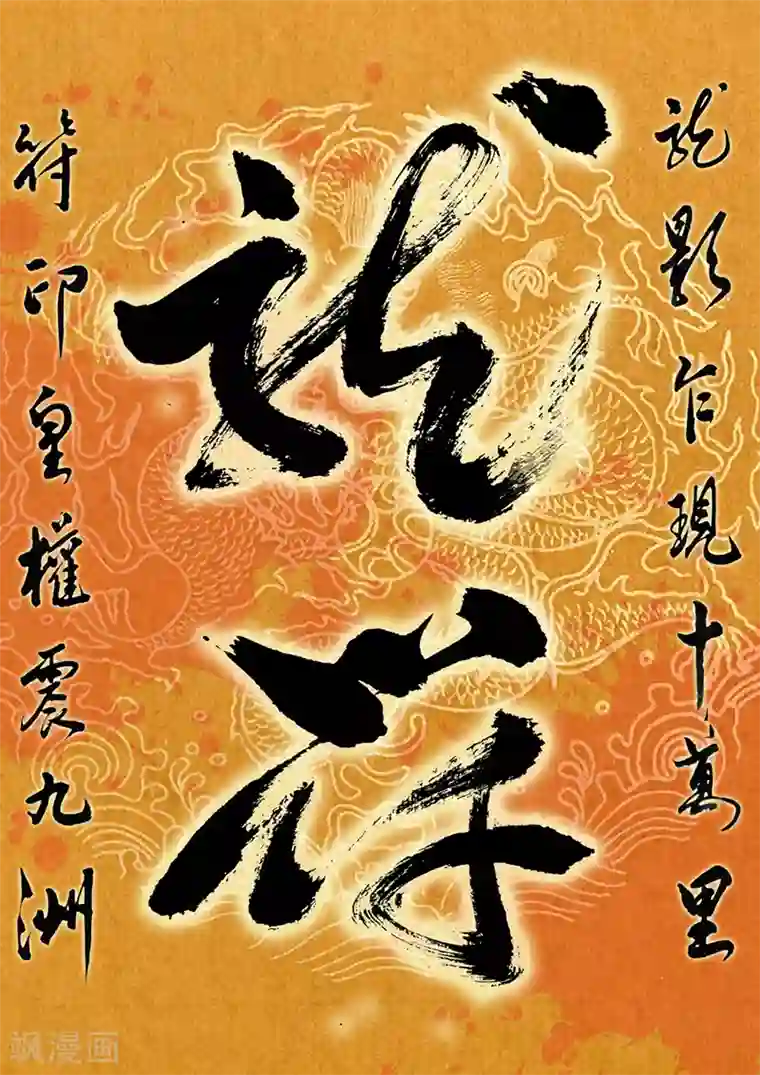 龍影乍現十萬里
龍符
符印皇權震九洲
飒漫画